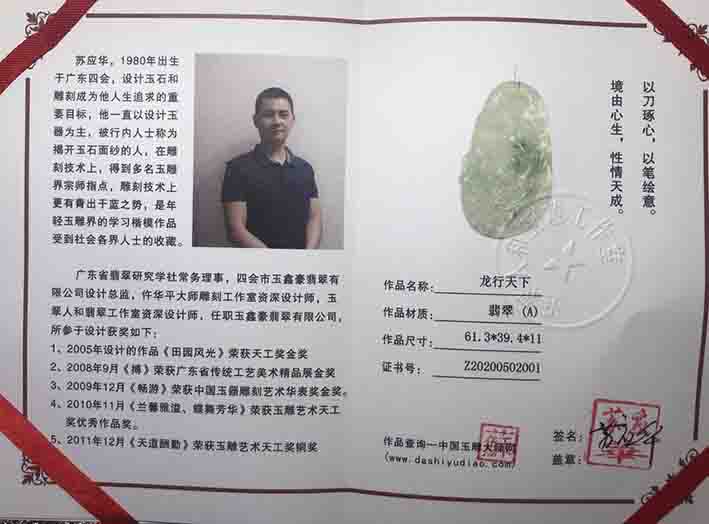 苏应华，1980年出生
于广东四会，设计玉石和
雕刻成为他人生追求的重
要目标，他一直以设计玉
器为主，被行内人士称为
揭开玉石面纱的人，在雕
刻技术上，得到多名玉雕
界宗师指点，雕刻技术上
更有青出于蓝之势，是年
轻玉雕界的学习楷模作品
受到社会各界人士的收藏。
广东省翡翠研究学社常务理事，四会市玉鑫豪翡翠有
限公司设计总监，仵华平大师雕刻工作室资深设计师，玉
翠人和翡翠工作室资深设计师，任职玉鑫豪翡翠有限公司，
所参于设计获奖如下：
1、2005年设计的作品《田园风光》荣获天工奖金奖
2、2008年9月《搏》荣获广东省传统工艺美术精品展金奖
3、2009年12月《畅游》荣获中国玉器雕刻艺术华表奖金奖。
4、2010年11月《兰馨雅溢、蝶舞芳华》荣获玉雕艺术天工
奖优秀作品奖。
5、2011年12月《天道酬勤》荣获玉雕艺术天工奖铜奖
以刀琢心，以笔绘意。
境由心生，性情天成。
作品名称： 龙行天下
作品材质： 翡翠（A）
作品尺寸： 61.3*39.4*11
证书号： Z20200502001
作品查询--中国玉雕大师网
(www.dashiyudiao.com)
签名： 苏应华
盖章：
工作室